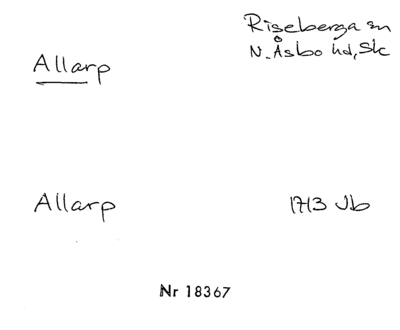 Riseberga sn
Allarp
N. Åsbo hd, Sk
Allarp
1713 Jb
Nr 18367